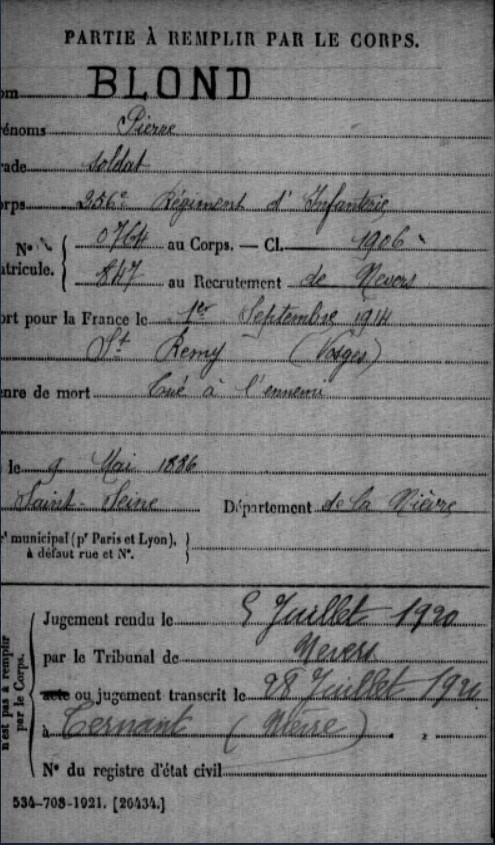 PARTIE À REMPLIR PAR LE CORPS.
om BLOND
énoms Pierre
ade soldat
rps 256e Régiment d'Infanterie
N° 0764 au Corps. — Cl. 1906
atricule. 847 au Recrutement de Nevers
ort pour la France le 1er Septembre 1914
St Remy (Vosges)
nre de mort tué à l'ennemi
le 9 Mai 1886
Saint-Seine Département de la Nièvre
r municipal (pr Paris et Lyon),
à défaut rue et N°.
n'est pas à remplir
par le Corps.
Jugement rendu le 5 Juillet 1920
par le Tribunal de Nevers
acte ou jugement transcrit le 28 Juillet 1920
à Ternant (Nièvre)
N° du registre d'état civil
534-708-1921. [26434.]